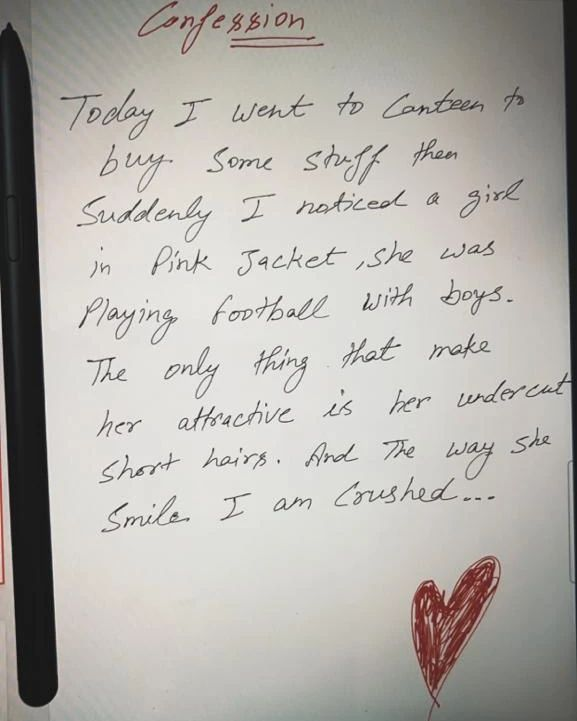 Confession
Today I went to Canteen to
buy some stuff then
Suddenly I noticed a girl
in Pink Jacket, she was
Playing football with boys.
The only thing that make
her attractive is her undercut
short hairs. And The way she
Smile I am Crushed...